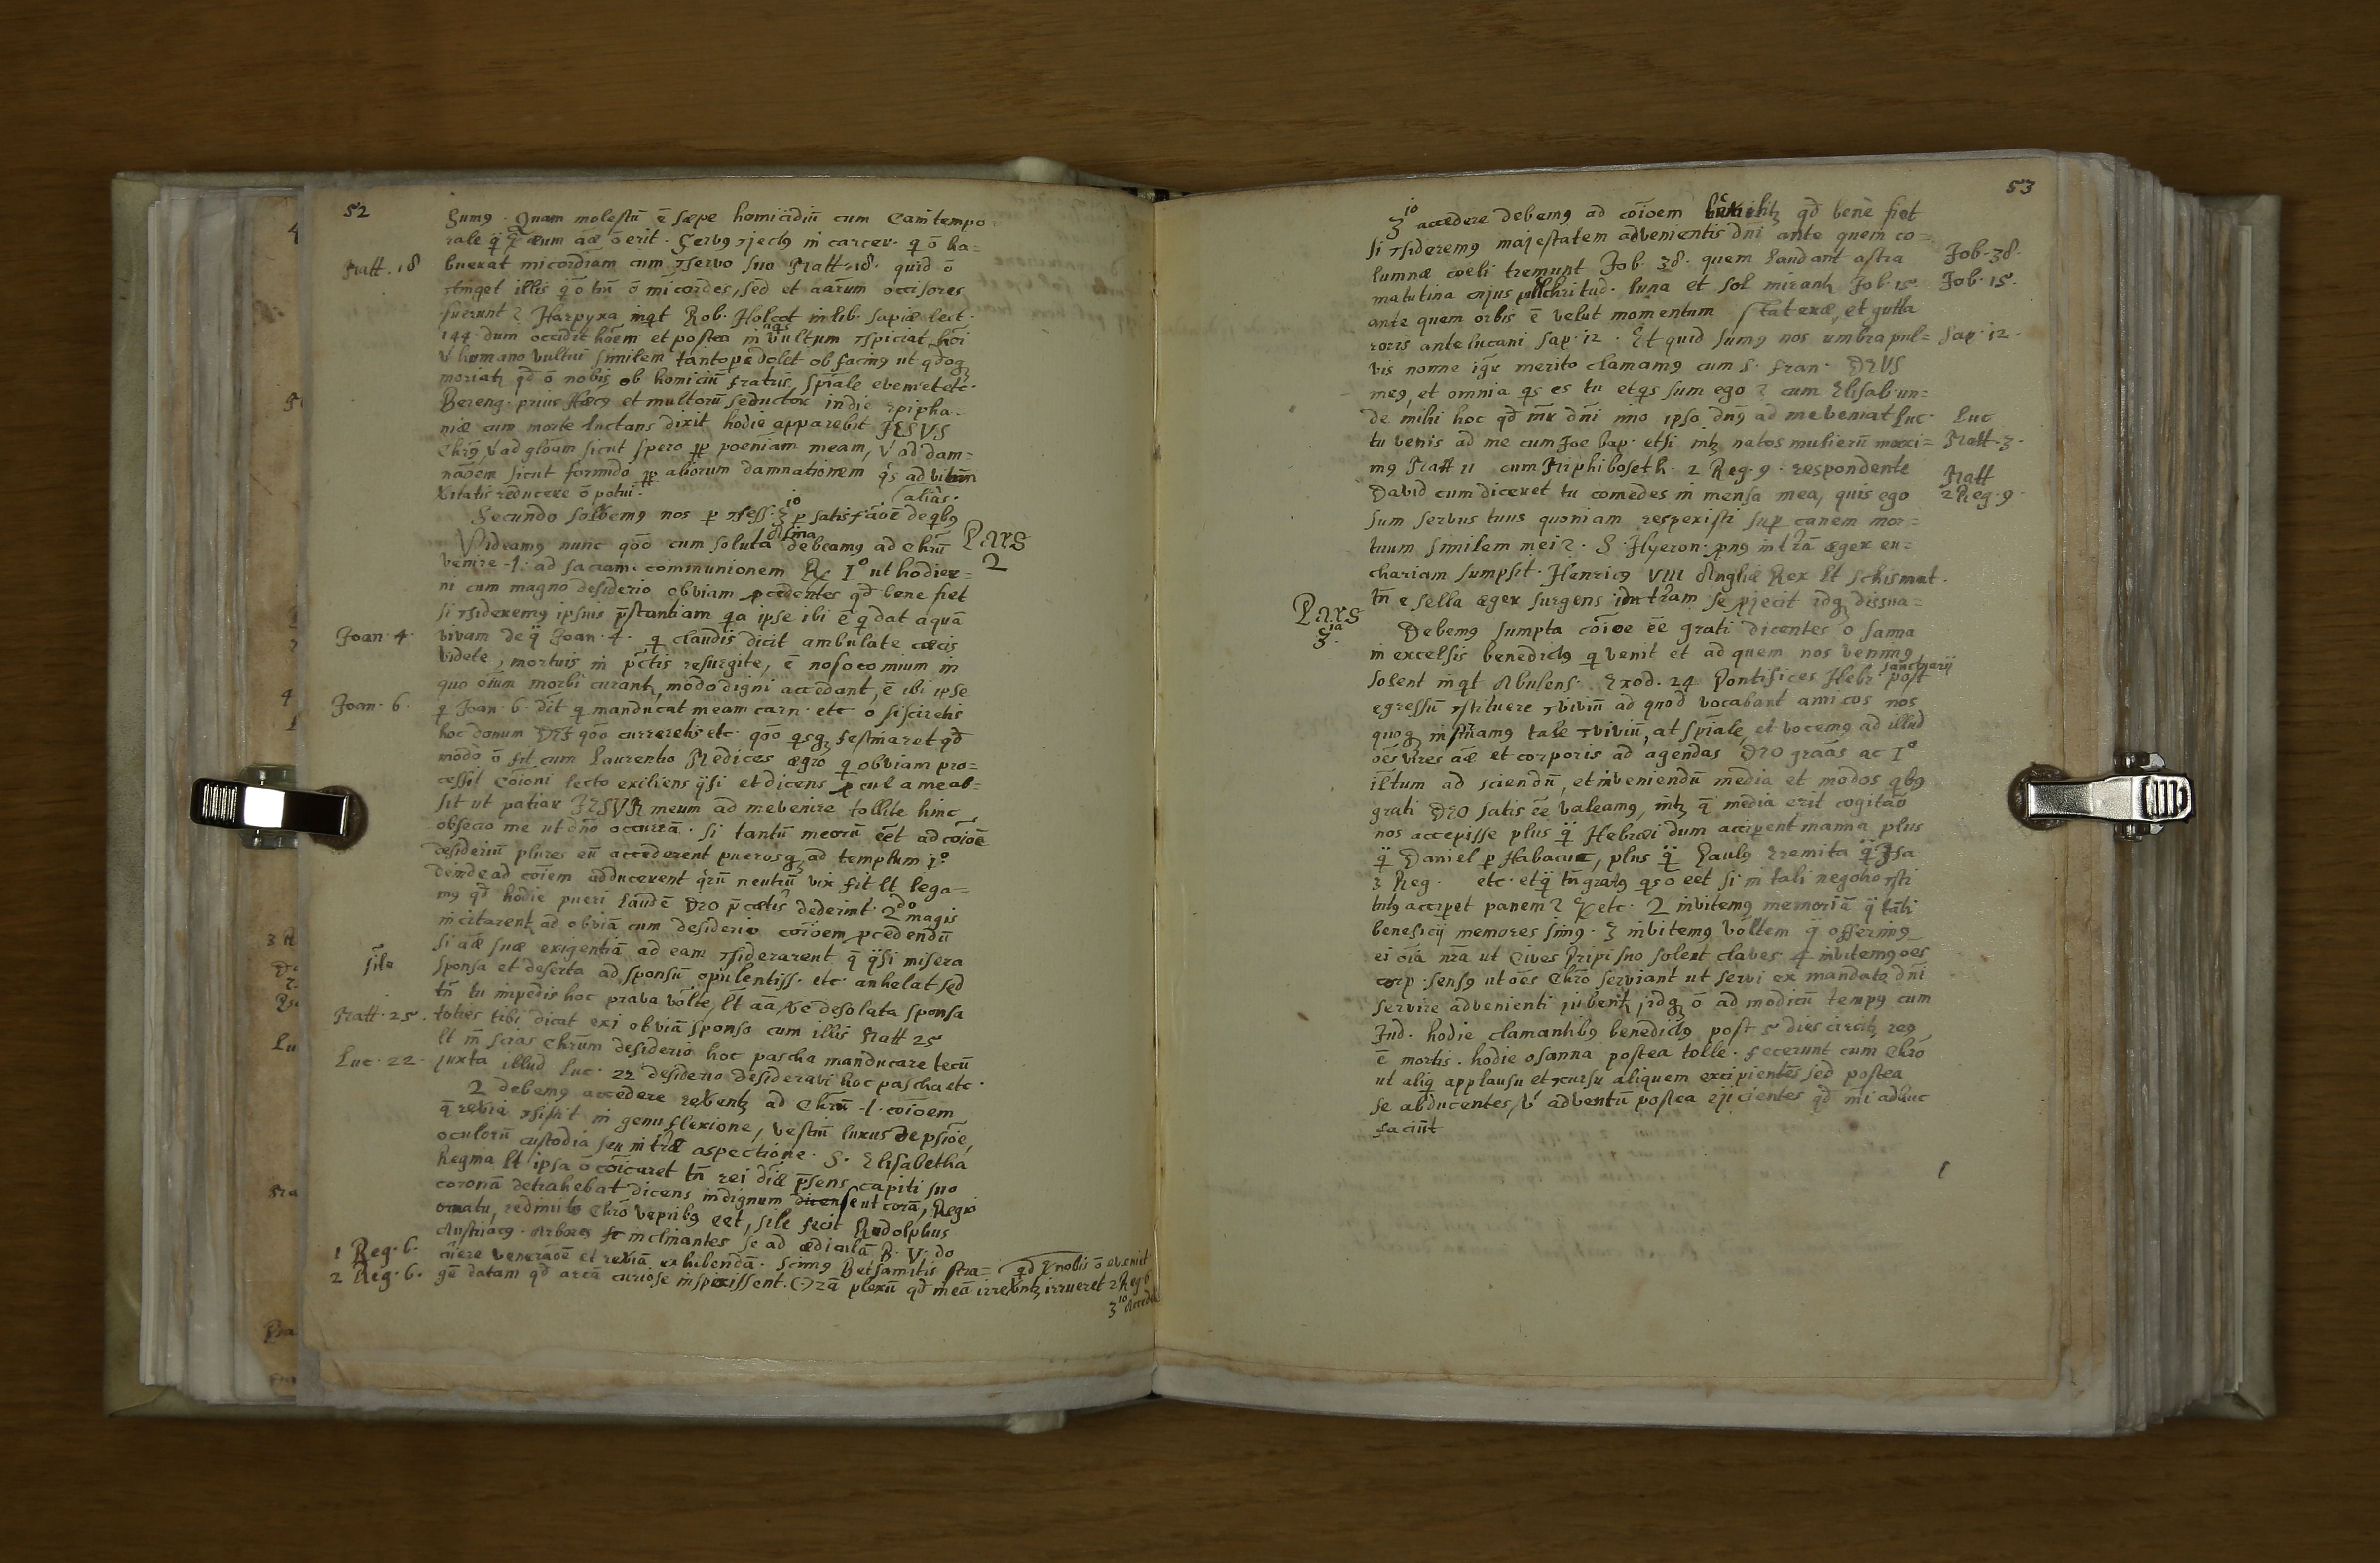 52
Sumꝯ. Quam molestū ē sæpe homicidiū cum eam tempo
rale
Matt. 18
buerat micordiam cum ꝯservo suo Matt. 18. quid ō
ꝯtinget illis q̄ ō tm̄ ō micordes, sed et aārum occisores
fuerunt? Harpyxa inqt Rob. Holcot in lib. sapiæ lect.
144. dum occidit hoēm et postea in vultum ꝯspiciat hoi
v̀ humano vultui similem tantoperè dolet ob facinꝯ ut
moriatꝫ qđ ō nobis ob homiciū fratris, spiāle evemet etc.
Bereng. prius Hæcꝯ et multorū seductor in die Epipha=
niæ cum morte luctans dixit hodie apparebit JESVS
Chrꝯ, v̀ ad gloām sicut spero ꝓp poeniam meam, v̀ ad dam=
naōem sicut formido ꝓp aliorum damnationem q̄s ad
Xitatis reducere ō potui.
alias.
Secundo solvemꝯ nos p ꝯfess. 3io p satisfāoē de qbꝯ
Videamꝯ nunc qōō cum soluta aīma debeamꝯ ad Chrū
Pars
2
venire .1. ad sacram communionem R. 1º ut hodier=
ni cum magno desiderio obviam ꝓcedentes qđ bene fiet
si ꝯsideremꝯ ipsius p̄stantiam qa ipse ibi ē q dat aquā
Joan. 4.
vivam de q̄ Joan. 4. q claudis dicit ambulate cæcis
videte, mortuis in p̄ctis resurgite, ē nosocomium in
quo oīum morbi curantꝫ, modo digni accedant, ē ibi ipse
Joan. 6.
q Joan. 6. dit q manducat meam carn. etc o si sciretis
hoc donum DEI qōō curreretis etc. qōō qsqꝫ festinaret qđ
modo ō fit cum Laurentio Medices ægro q obviam pro=
cessit coīoni lecto exiliens q̄si et dicens ꝓcul a me ab=
sit ut patiar JESVM meum ad me venire tollite hinc,
obsecro me ut dn̄o occurrā. Si tantū meorū eēt ad coīoē
desideriū plures eū accederent puerosqꝫ ad templum 1º
deinde ad coīem adducerent q̄rū neutrū vix fit lt lega=
mꝯ qđ hodie pueri laudē DEO
incitarent ad obviā cum desiderio coīoem ꝓcedendū
si aæ suæ exigentiā ad eam ꝯsiderarent q̄ q̄si misera
sile
sponsa et deserta ad sponsū opulentiss. etc. anhelat sed
tn̄ tu impedis hoc prava volte, lt aā Xe desolata sponsa
Matt. 25.
toties tibi dicat exi obviā sponso cum illis Matt 25
lt m̄ scias Chrum desiderio hoc pascha manducare tecū
Luc. 22.
juxta illud Luc. 22 desiderio desideravi hoc pascha etc.
2 debemꝯ accedere reverentꝫ ad Chrū .1. coīoem
q̄ rexia ꝯsistit in genuflexione, vestiū luxus depsiōe,
oculorū custodia seu in træ aspectione. S. Elisabetha
Regina lt ipsa ō coīcaret tn̄ rei diæ p̄sens capiti suo
coronā detrahebat dicens indignum dicens eē ut corā, Regio
ornatu, redimito Chrō vepribꝯ eēt, sile fecit Rodolphus
Austriacꝯ. Arbores se inclinantes se ad ædiculā B. V. do
1 Reg. 6.
cūere venerāoē et rexiā exhibendā. Scimꝯ Betsamitis stra=
qđ X nobis ō evenit
2 Reg. 6.
gē datam qđ arcā curiose inspexissent. Ozā plexū qđ in eā irreXntꝫ irrueret 2 Reg 6
3io Acced
53
3io accedere debemꝯ ad coīoem qđ benè fiet
si ꝯsideremꝯ majestatem advenientis dn̄i ante quem co=
lumnæ coeli tremunt Job. 38. quem laudant astra
Job. 38.
matutina cujus pulchritud. luna et sol mirantꝫ Job. 15.
Job. 15.
ante quem orbis ē velut momentum stateræ, et gutta
roris antelucani Sap. 12. Et quid sumꝯ nos umbra pul=
Sap. 12.
vis nonne igr̄ merito clamamꝯ cum S. Fran. DEUS
meꝯ, et omnia qs es tu et qs sum ego? cum Elisab. un=
de mihi hoc qđ m̄r dn̄i imo ipse dn̄ꝯ ad me veniat Luc.
Luc
tu venis ad me cum Joe bap. etsi intꝫ natos mulierū maxi=
Matt. 3.
mꝯ Matt 11 cum Miphiboseth. 2 Reg. 9. respondente
Matt
David cum diceret tu comedes in mensa mea, quis ego
2 Reg. 9.
sum servus tuus quoniam respexisti sup canem mor=
tuum similem mei?. S. Hyeron. ꝓnꝯ in trā æger eu=
chariam sumpsit. Henricꝯ VIII Angliæ Rex lt schismat.
tn̄ e sella æger surgens in trām se ꝓjecit idqꝫ dissua=
Pars
3ia.
Debemꝯ sumpta coīoe eē grati dicentes o sanna
in excelsis benedictꝯ q venit et ad quem nos venimꝯ
solent inqt Abulens. Exod. 24 Pontifices Hebr. post sanctuarij
egressū ꝯstituere ꝯviviū ad quod vocabant amicos nos
quoqꝫ instruamꝯ tale ꝯviviū, at spiāle, et vocemꝯ ad illud
oēs vires aæ et corporis ad agendas DEO graās ac 1º
iltum ad sciendū, et inveniendū media et modos qbꝯ
grati DEO satis eē valeamꝯ, intꝫ q̄ media erit cogitāo
nos accepisse plus q̄ Hebræi dum acciperent manna plus
q̄ Daniel p Habacuc, plus q̄ Paulꝯ Eremita q̄ Isa
3 Reg. etc. et q̄ tn̄ gratꝯ qso eēt si in tali negotio ꝯsti
tutꝯ acciperet panem? X etc. 2 invitemꝯ memoriā q̄ tāti
beneficij memores simꝯ. 3 invitemꝯ voltem q̄ offerimꝯ
ei oīa nr̄a ut Cives Pripi suo solent claves. 4 invitemꝯ oēs
corp. sensꝯ ut oēs Chrō serviant ut servi ex mandato dn̄i
servire advenienti jubentꝫ, idqꝫ ō ad modicū tempꝯ cum
Jud. hodie clamantibꝯ benedictꝯ, post 5 dies circitꝫ reꝯ
ē mortis. hodie osanna postea tolle. fecerunt cum Chrō
ut aliq applausu et ꝯcursu aliquem excipientes sed postea
se abducentes, v̀ adventū postea ejicientes qđ m̄i adhuc
faciūt